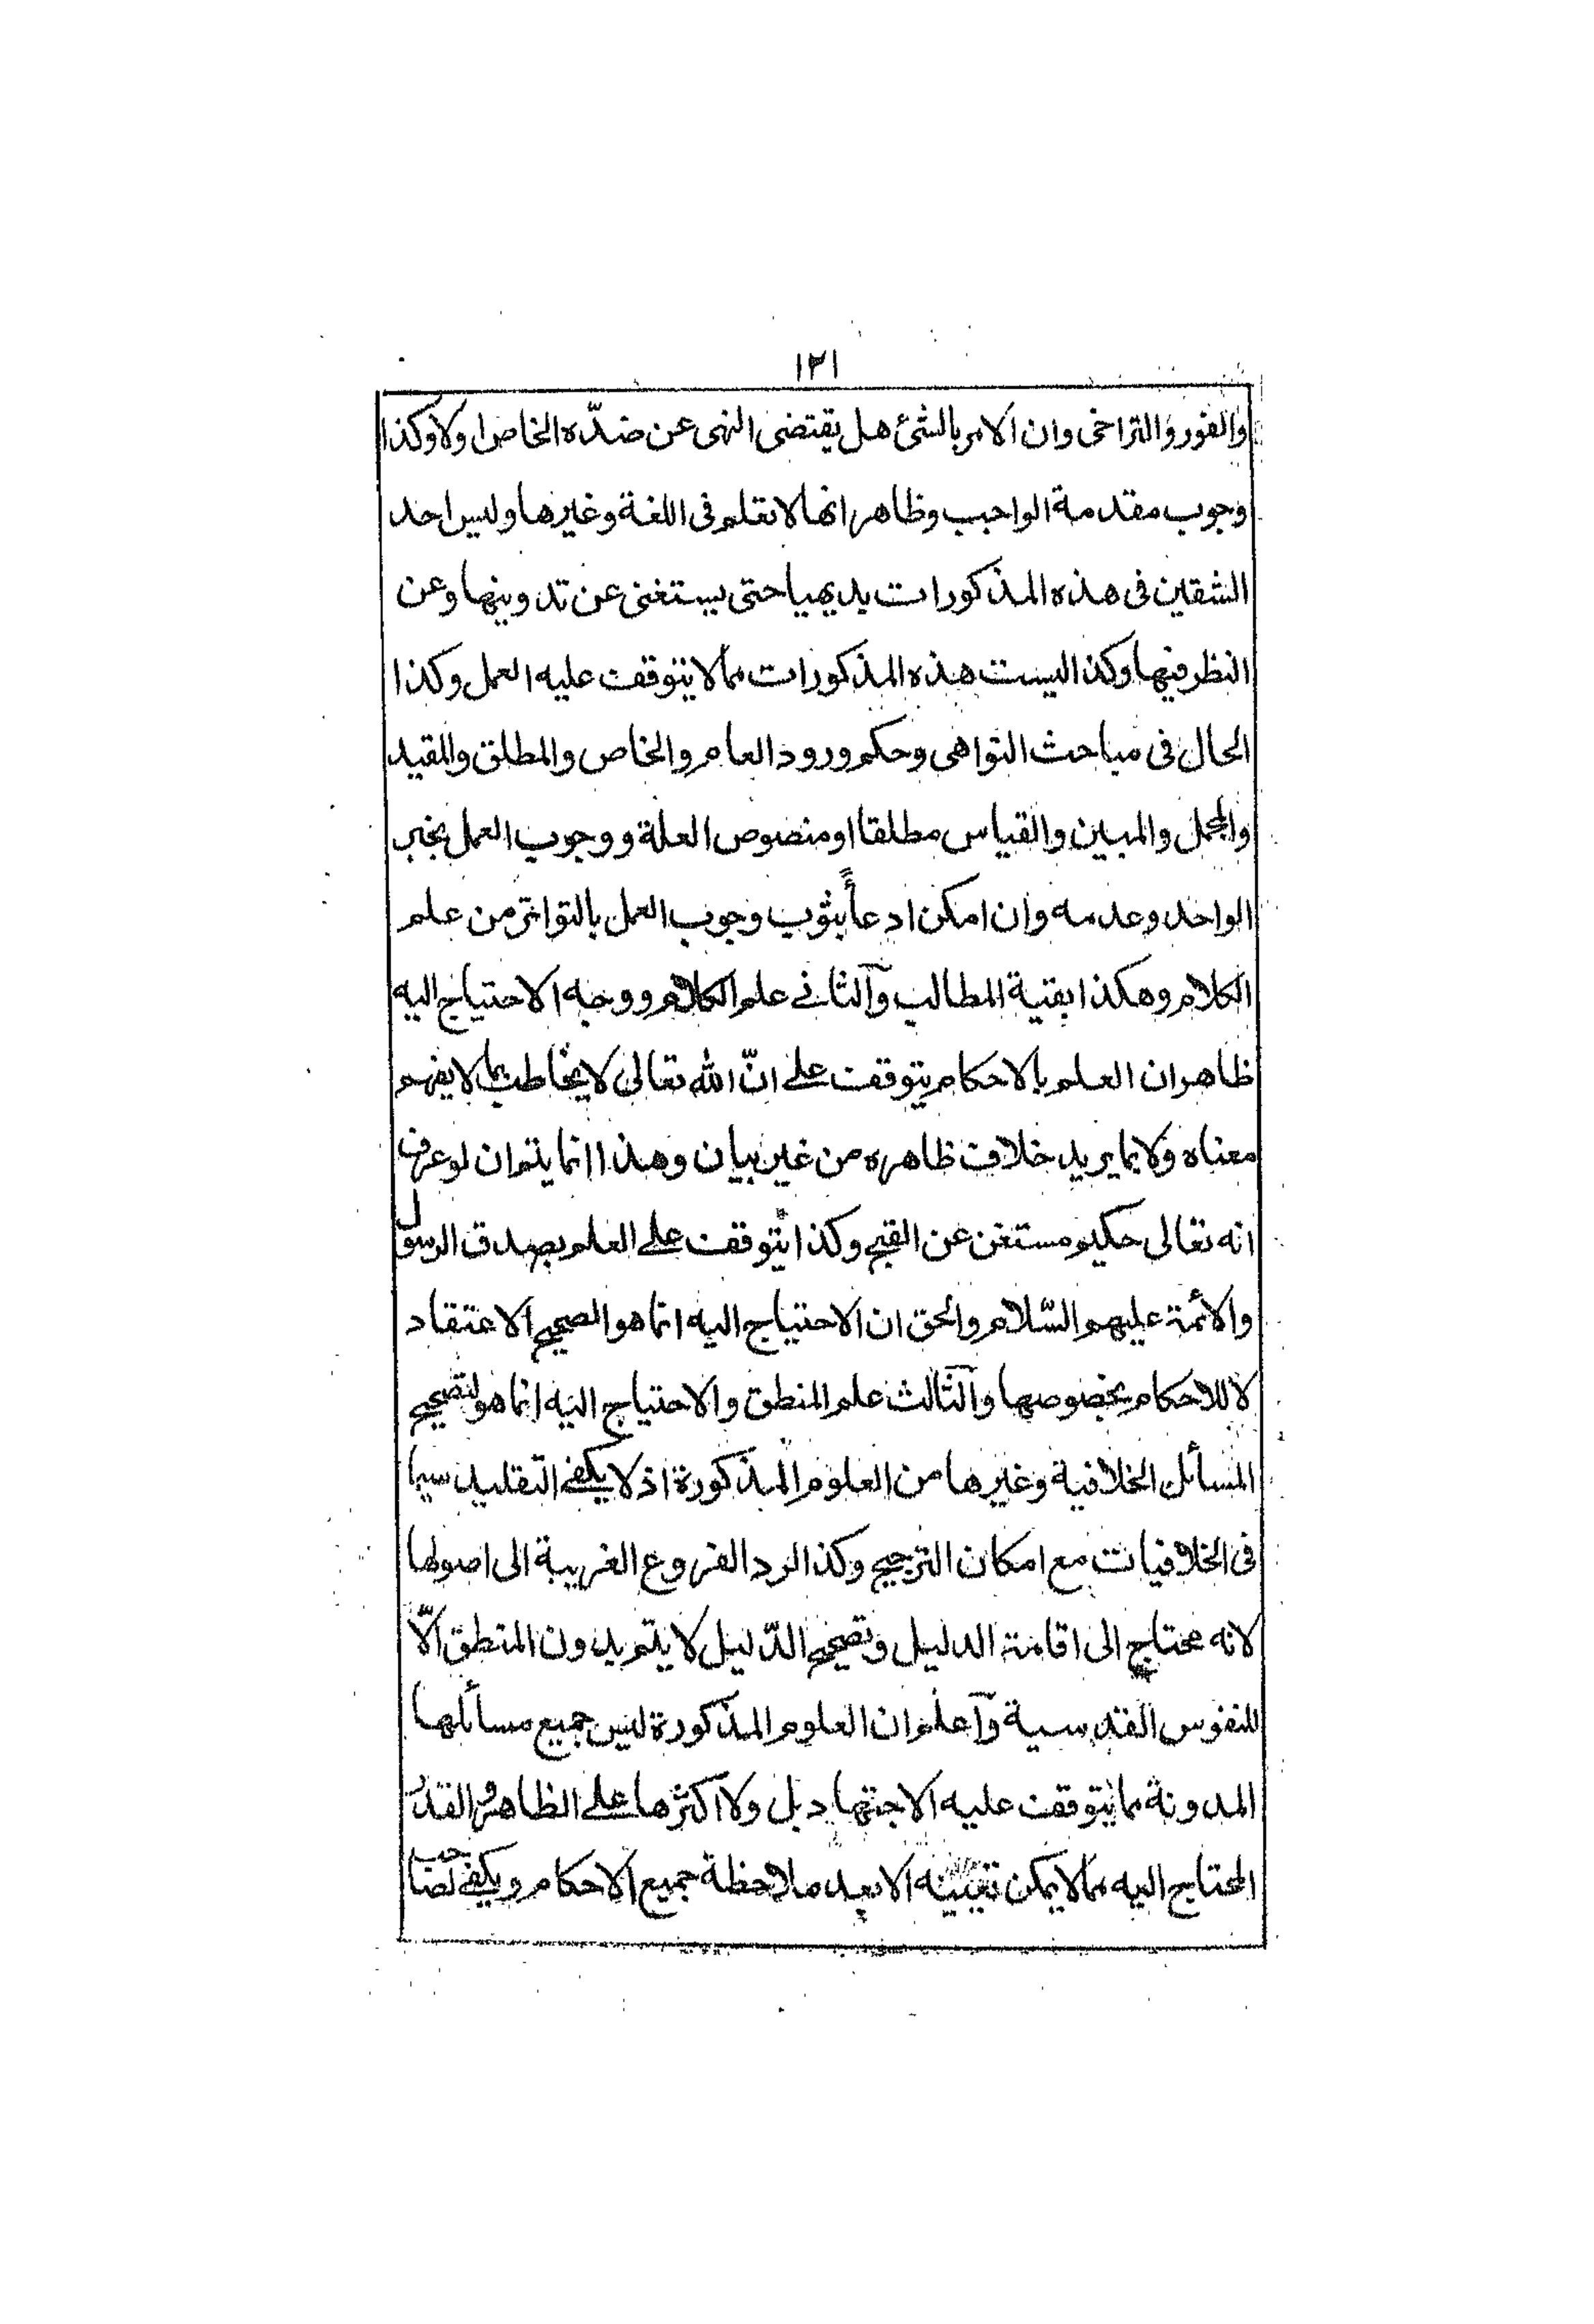 ١٢١
والفور والتراخى وان الامر بالشئ هل يقتضى النهى عن ضدّه الخاص او لا وكذا
وجوب مقدمة الواجب وظاهر انها لا تعلم فى اللغة وغيرها وليس احد
الشقين فى هذه المذكورات بديهيا حتى يستغنى عن تدوينها وعن
النظر فيها وكذا ليست هذه المذكورات مما لا يتوقف عليه العمل وكذا
الحال فى مباحث النواهى وحكم ورود العام والخاص والمطلق والمقيد
والمجمل والمبين والقياس مطلقا او منصوص العلة ووجوب العمل بخبر
الواحد وعدمه وان امكن ادعأ ثبوت وجوب العمل بالتواتر من علم
الكلام وهكذا بقية المطالب وآلثانے علم الكلام ووجه الاحتياج اليه
ظاهر ان العلم بالاحكام يتوقف علے انّ الله تعالى لا يخاطب بما لا يفهم
معناه ولا بما يريد خلاف ظاهره من غير بيان وهذا انما يتم ان لو عرف
انه تعالى حكيم مستغن عن القبيح وكذا يتوقف علے العلم بصدق الرسول
والأئمة عليهم السّلام والحق ان الاحتياج اليه انما هو لصحيح الاعتقاد
لا للاحكام بخصوصها وآلثالث علم المنطق والاحتياج اليه انما هو لتصحيح
المسائل الخلافية وغيرها من العلوم المذكورة اذ لا يكفے التقليد سيما
فى الخلافيات مع امكان الترجيح وكذا لرد الفروع الغريبة الى اصولها
لانه محتاج الى اقامة الدليل وتصحيح الدّليل لا يتم بدون المنطق الّا
للنفوس القدسية وآعلم ان العلوم المذكورة ليس جميع مسائلها
المدونة مما يتوقف عليه الاجتهاد بل ولا اكثرها علے الظاهر والقدر
المحتاج اليه مما لا يمكن تعيينه الا بعد ملاحظة جميع الاحكام ويكفے لصاحب